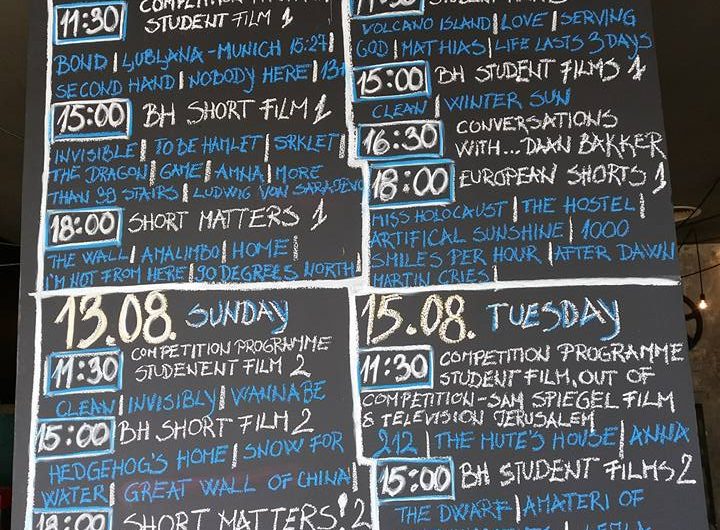 11:30 COMPETITION
STUDENT FILM 1
BOND | LJUBLJANA - MUNICH 15:27 |
SECOND HAND | NOBODY HERE | 13+
15:00 BH SHORT FILM 1
INVISIBLE | TO BE HAMLET | SRKLET |
THE DRAGON | GAME | AMNA | MORE
THAN 99 STAIRS | LUDWIG VON SARAJEVO
18:00 SHORT MATTERS 1
THE WALL | AMALIMBO | HOME |
I'M NOT FROM HERE | 90 DEGREES NORTH |
13.08. SUNDAY
11:30 COMPETITION PROGRAMME
STUDENENT FILM 2
CLEAN | INVISIBLY | WANNABE
15:00 BH SHORT FILM 2
HEDGEHOG'S HOME | SNOW FOR
WATER | GREAT WALL OF CHINA |
18:00 SHORT MATTERS! 2
11:30
VOLCANO ISLAND | LOVE | SERVING
GOD | MATHIAS | LIFE LASTS 3 DAYS
15:00 BH STUDENT FILMS 1
CLEAN | WINTER SUN
16:30 CONVERSATIONS
WITH... DAAN BAKKER
18:00 EUROPEAN SHORTS 1
MISS HOLOCAUST | THE HOSTEL |
ARTIFICAL SUNSHINE | 1000
SMILES PER HOUR | AFTER DAWN
MARTIN CRIES |
15.08. TUESDAY
11:30 COMPETITION PROGRAMME
STUDENT FILM, OUT OF
COMPETITION - SAM SPIEGEL FILM
& TELEVISION JERUSALEM
212 | THE MUTE'S HOUSE | ANNA
15:00 BH STUDENT FILMS 2
THE DWARF | AMATERI OF